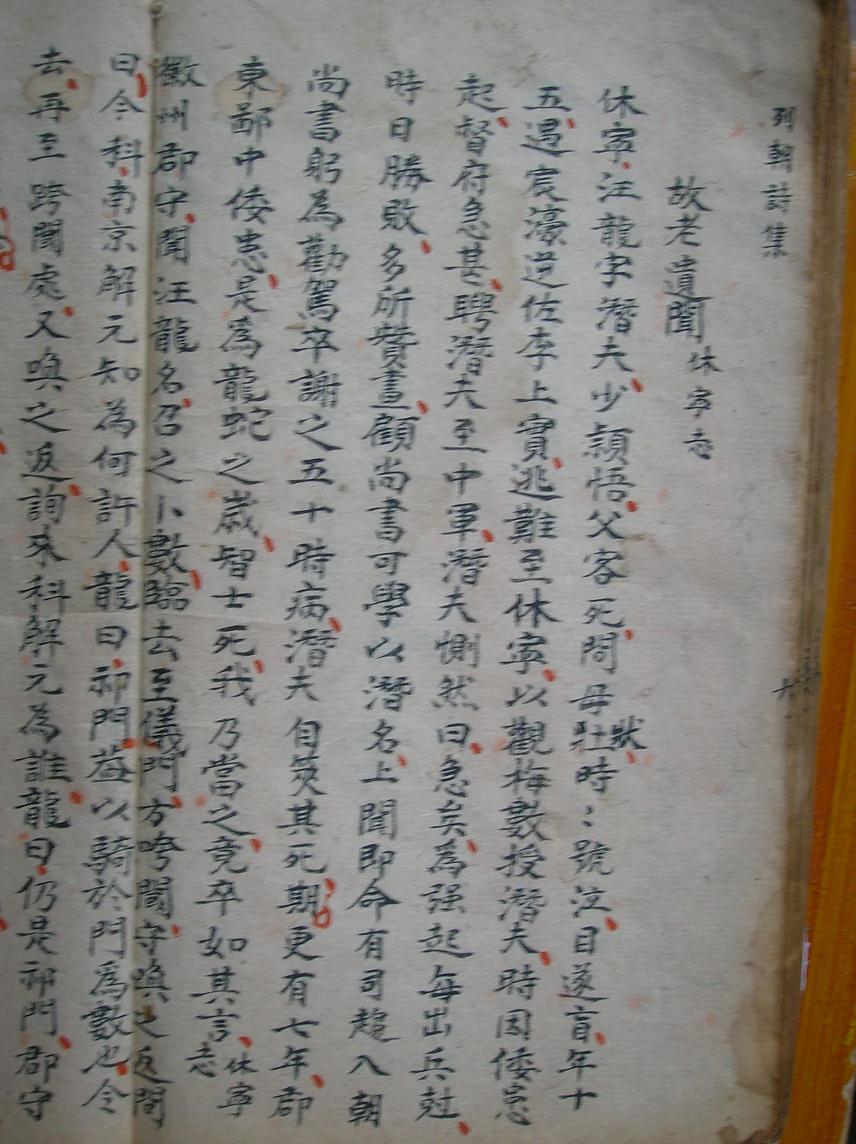 列朝詩集
故老遺聞 休寧志
休寧汪龍字潛夫少穎悟父客死問母壯狀時〻號泣目遂盲年十
五遇宸濠逆佐李上實逃難至休寧以觀梅數授潛夫時因倭患
起督府急甚聘潛夫至中軍潛夫惻然曰急矣為强起每出兵尅
時日勝敗多所贊畫顧尚書可學以潛名上聞即命有司趨入朝
尚書躬為勸駕卒謝之五十時病潛夫自筴其死期更有七年郡
東鄙中倭患是為龍蛇之歲智士死我乃當之竟卒如其言 休寧志
徽州郡守聞汪龍名召之卜數臨去至儀門方跨閾守喚之返問
曰今科南京解元知為何許人龍曰祁門葢以騎於門為數也令
去再至跨閾處又喚之返詢來科解元為誰龍曰仍是祁門郡守
六